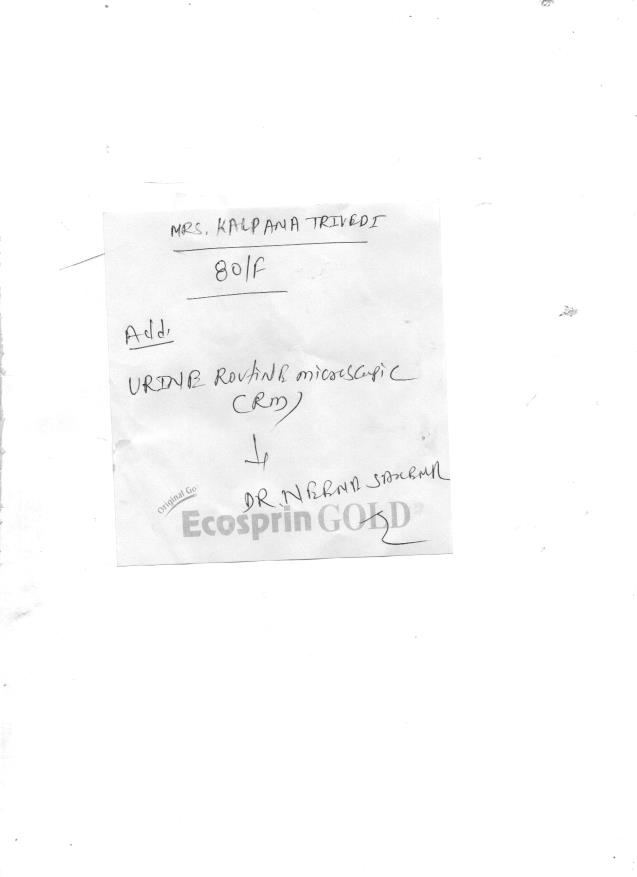 MRS. KALPANA TRIVEDI
80/F
Add.
URINE ROUTINE microscopic
(RM)
DR. NEENA SAXENA
Original Go
Ecosprin GOLD